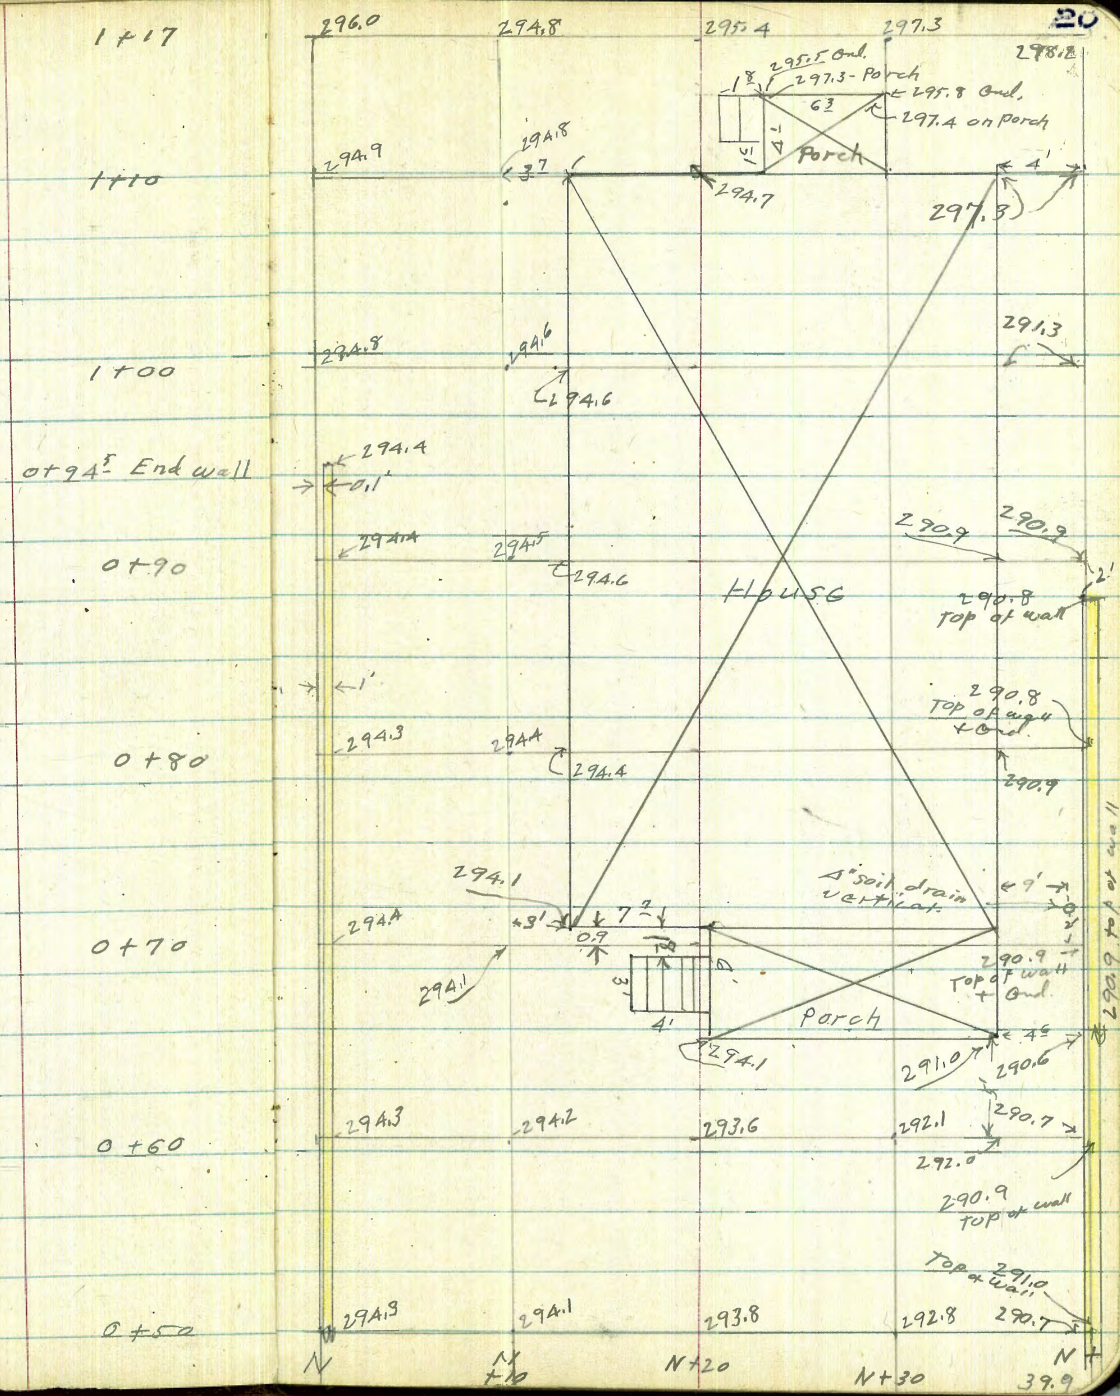 20
1+17
296.0
294.8
295.4
297.3
298.2
295.5 Gnd.
297.3 - Porch
1 8
6 3
295.8 Gnd.
297.4 on Porch
4 1
1 5
Porch
1+10
294.9
294.8
3 7
294.7
4'
297.3
1+00
294.8
294.6
294.6
291.3
0+94 5 End wall
294.4
0.1'
0+90
294.4
294.5
294.6
290.9
290.9
2'
House
290.8
Top of wall
1'
290.8
Top of wall
+ Gnd.
0+80
294.3
294.4
294.4
290.9
290.9 top of wall
294.1
4" soil drain
vertical
9'
0+70
294.4
3'
7 2
0.9
294.1
3'
4'
6'
290.9
Top of wall
+ Gnd.
Porch
4 6
294.1
291.0
290.6
5'
0+60
294.3
294.2
293.6
292.1
290.7
292.0
290.9
Top of wall
291.0
Top of wall
0+50
294.3
294.1
293.8
292.8
290.7
N
N
+10
N+20
N+30
N
+
39.9